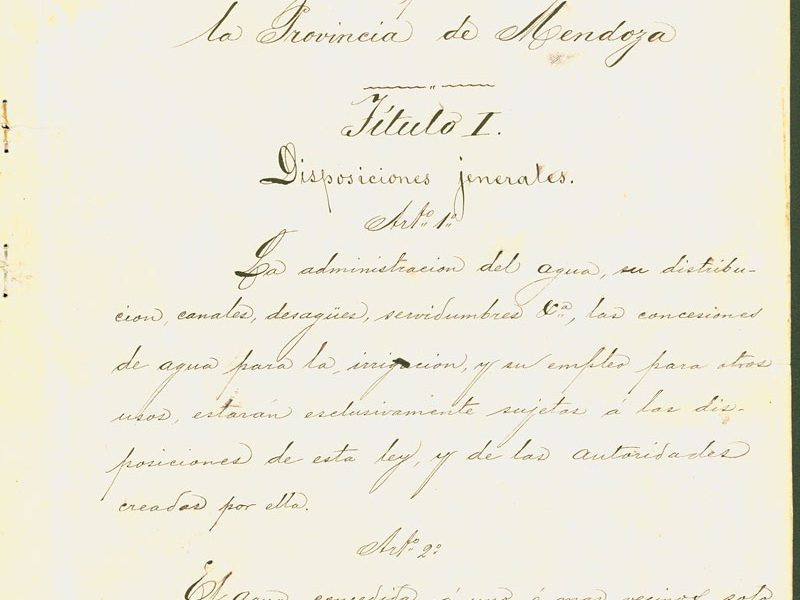 la Provincia de Mendoza
Título I.
Disposiciones jenerales.
Art.º 1º
La administracion del agua, su distribu-
cion, canales, desagües, servidumbres &.ª, las concesiones
de agua para la irrigacion, y su empleo para otros
usos, estarán esclusivamente sujetas á las dis-
posiciones de esta ley, y de las autoridades
creadas por ella.
Art.º 2º
El agua concedida á uno ó mas vecinos, solo